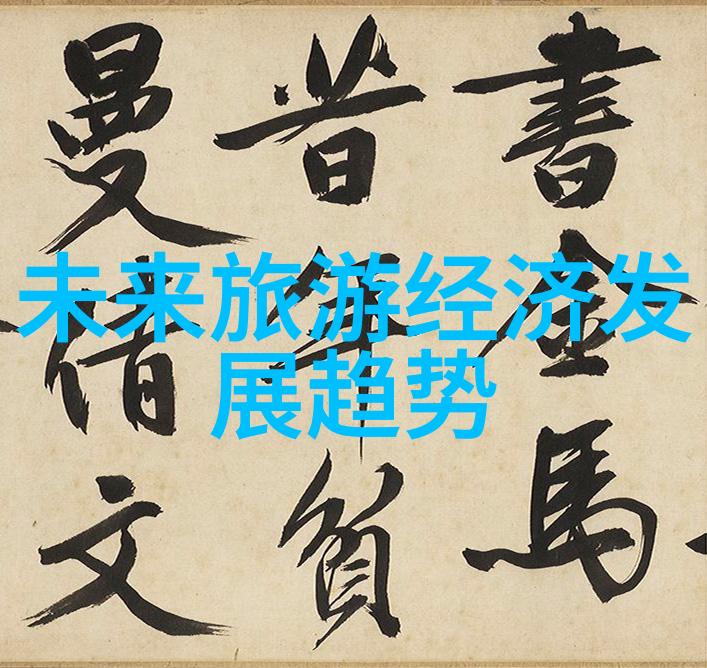 未来旅游经济发
展趋势
書金馬
昔年貧
曼倩文